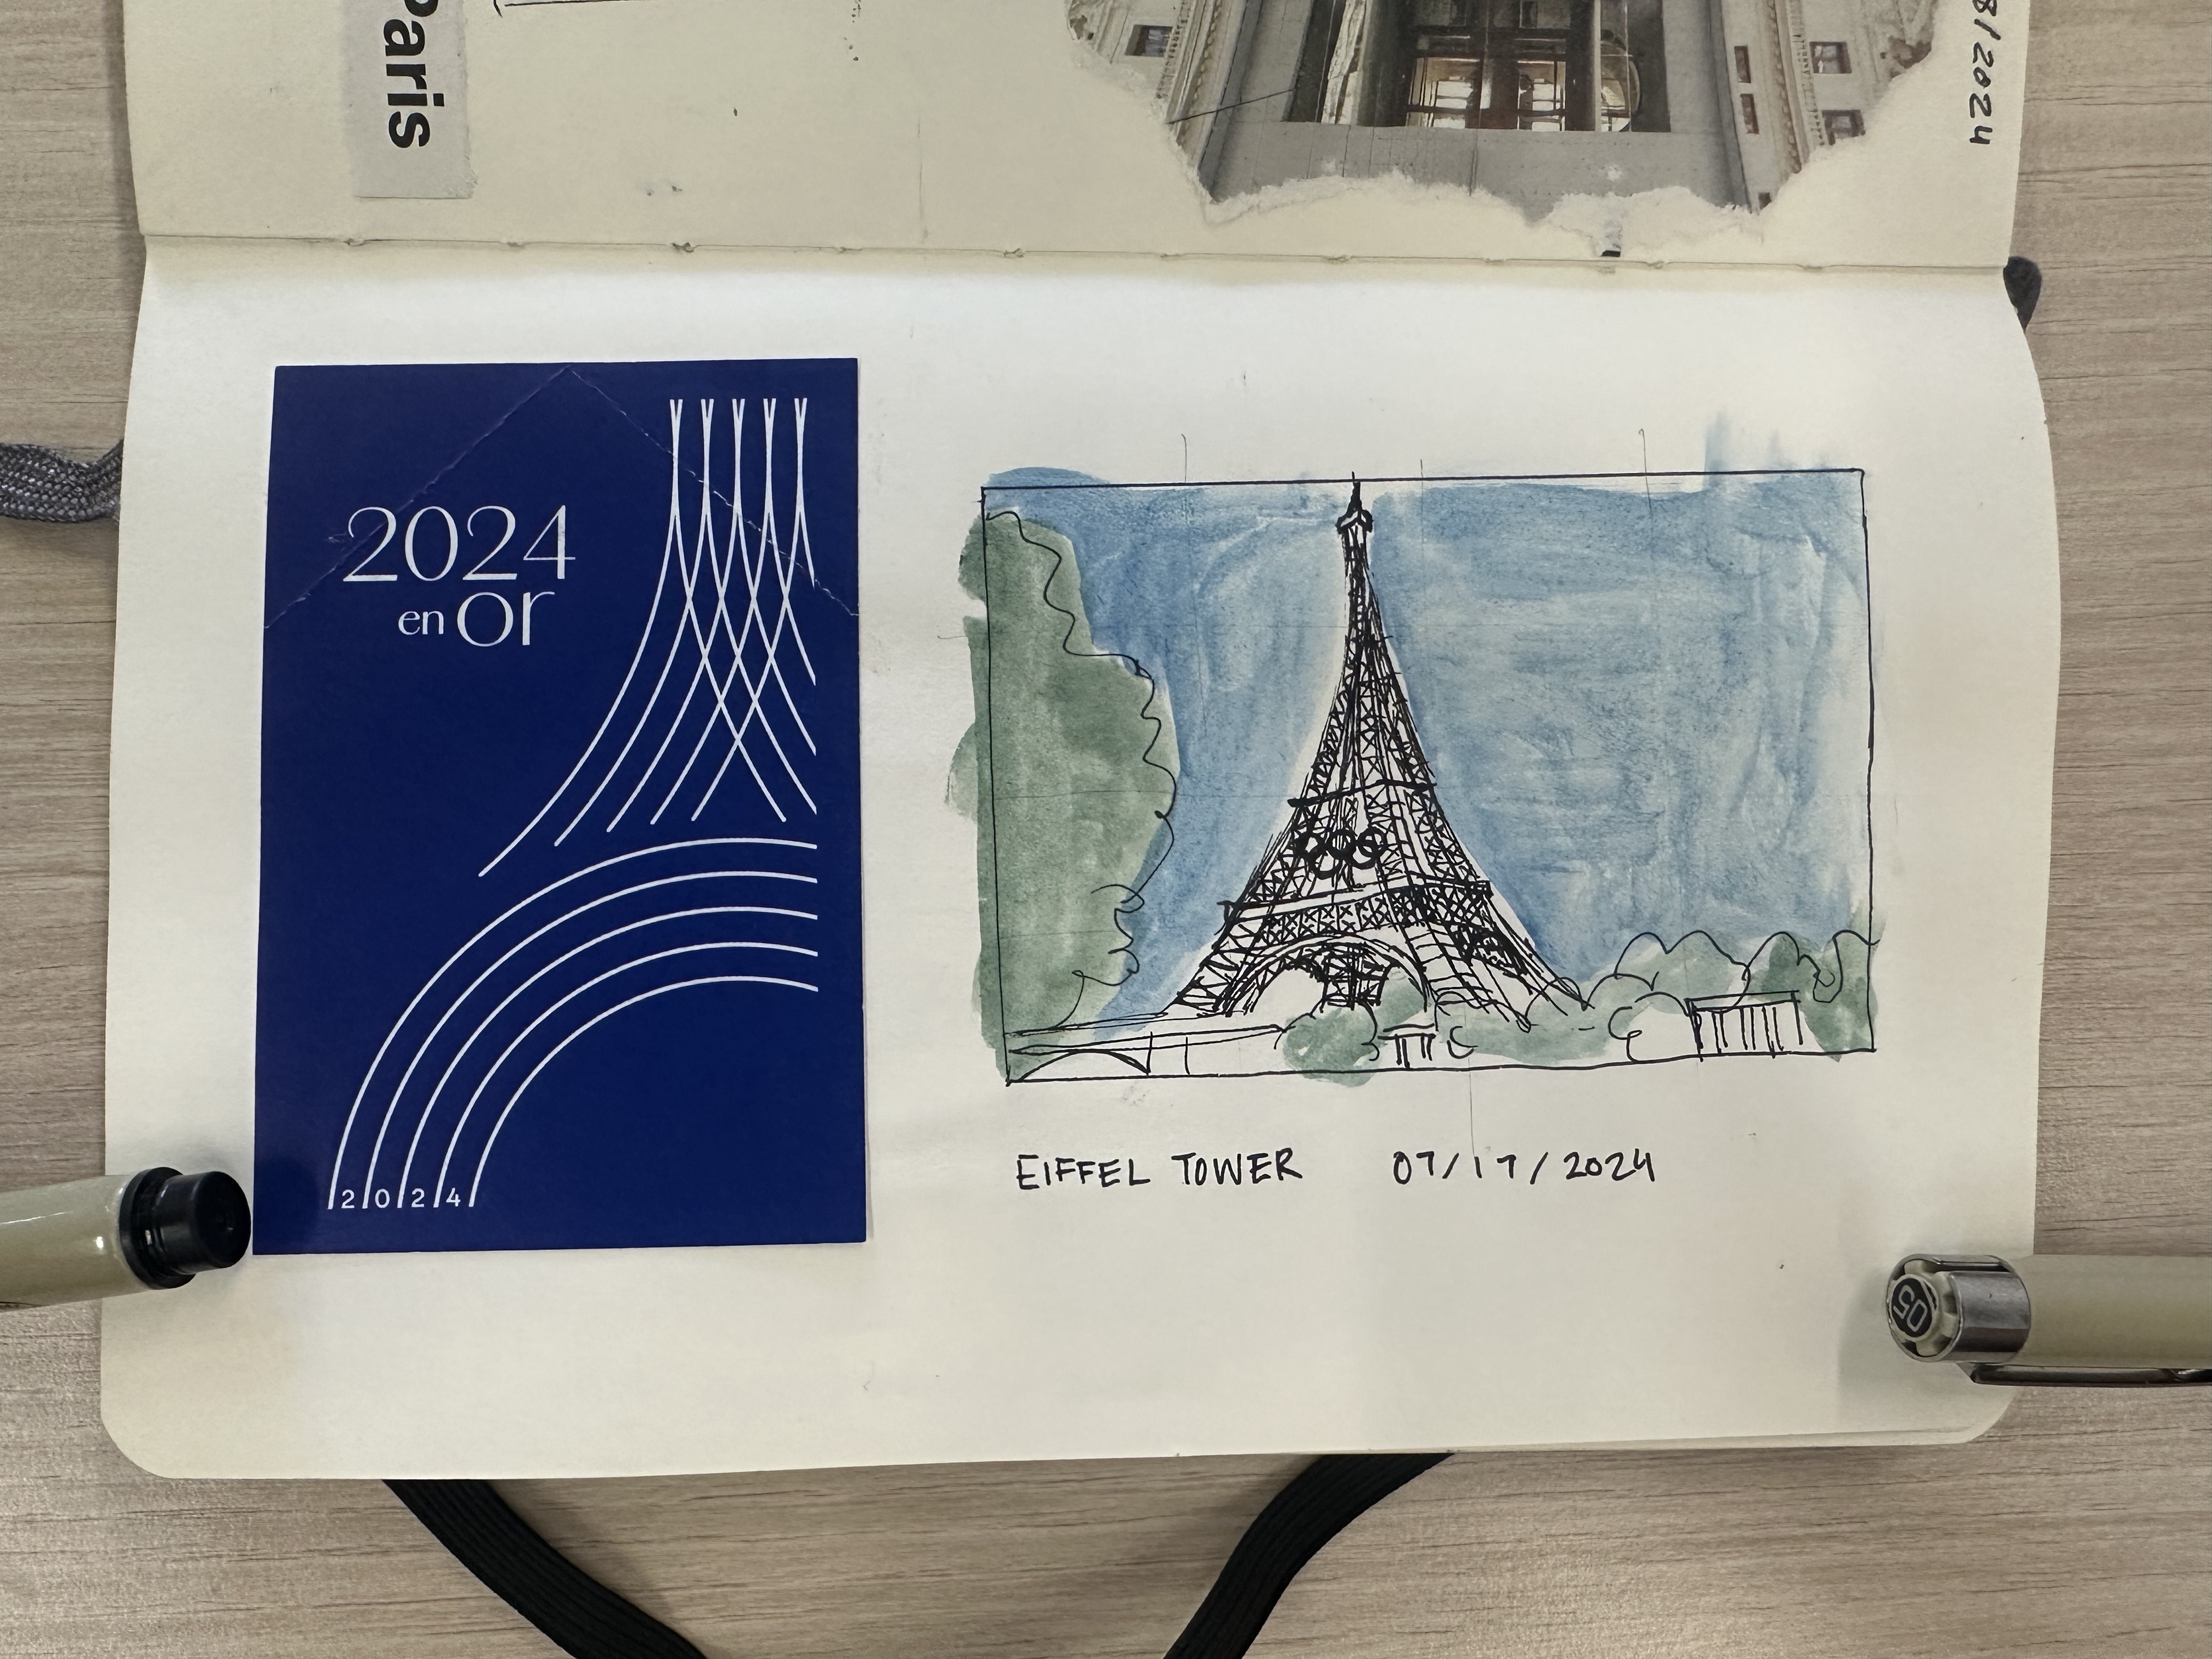 Paris
8/2024
2024
en or
2 0 2 4
EIFFEL TOWER 07/17/2024
05